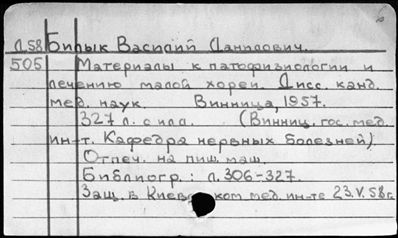 Д58 Билык Василий Данилович.
505 Материалы к патофизиологии и
лечению малой хореи. Дисс. канд.
мед. наук. Винница, 1957.
327 л. с илл. (Винниц. гос. мед.
ин-т. Кафедра нервных болезней)
Отпеч. на пиш. маш.
Библиогр.: л. 306-327.
Защ. в Киевском мед. ин-те 23.V.58г.